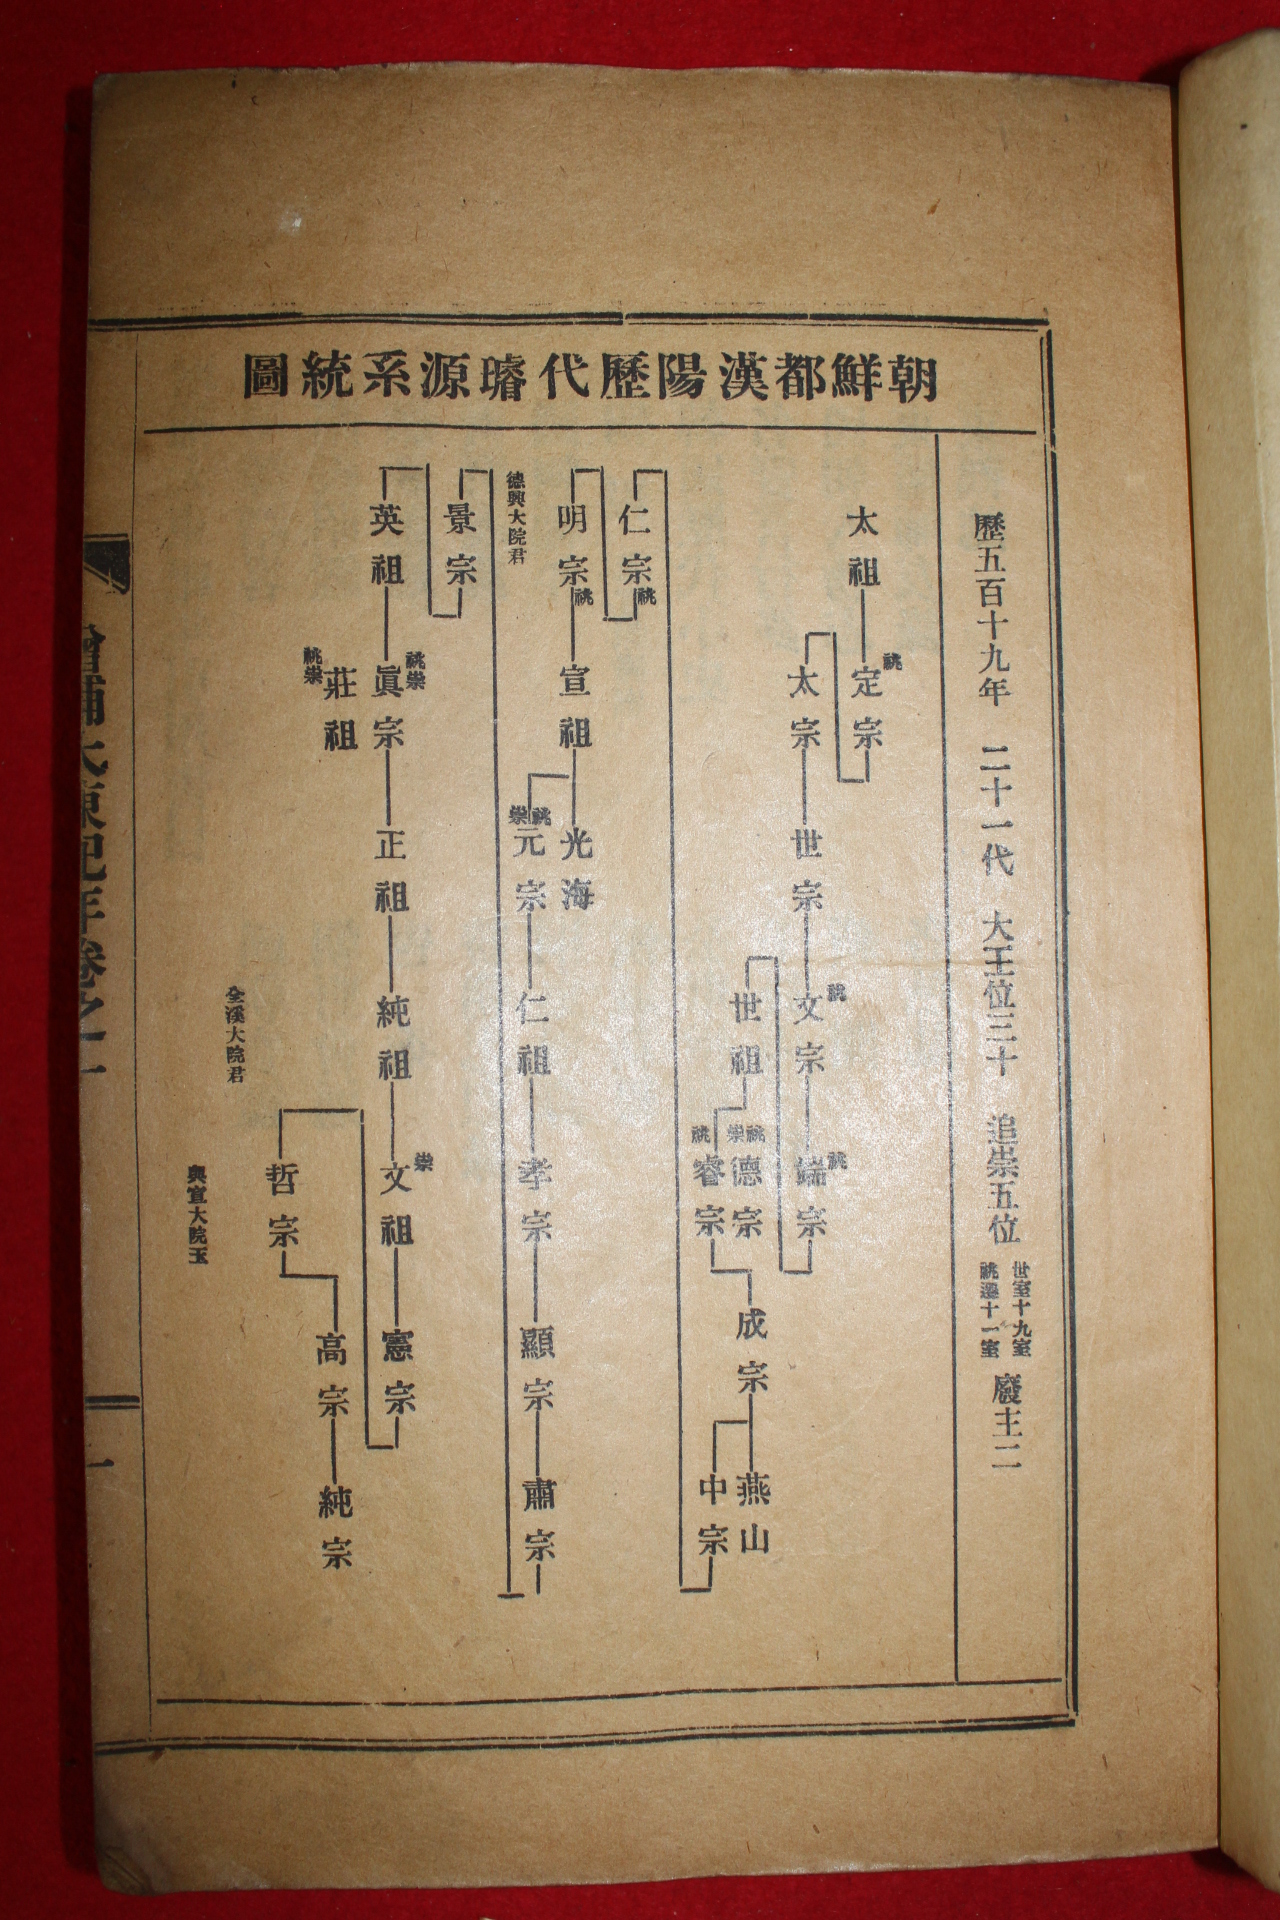 朝鮮都漢陽歷代璿源系統圖
歷五百十九年 二十一代 大王位三十 追崇五位 世室十九室 祧遷十一室 廢主二
太祖 定宗 祧
太宗 世宗 文宗 祧 端宗 祧
世祖 德宗 祧崇 睿宗 祧 成宗 燕山
中宗
仁宗 祧
明宗 祧 宣祖 光海
元宗 祧崇 仁祖 孝宗 顯宗 肅宗
德興大院君
景宗
英祖 眞宗 祧崇 正祖 純祖 文祖 崇 憲宗
莊祖 祧崇
高宗 純宗
哲宗
全溪大院君
興宣大院王
增補大東紀年卷之一
一